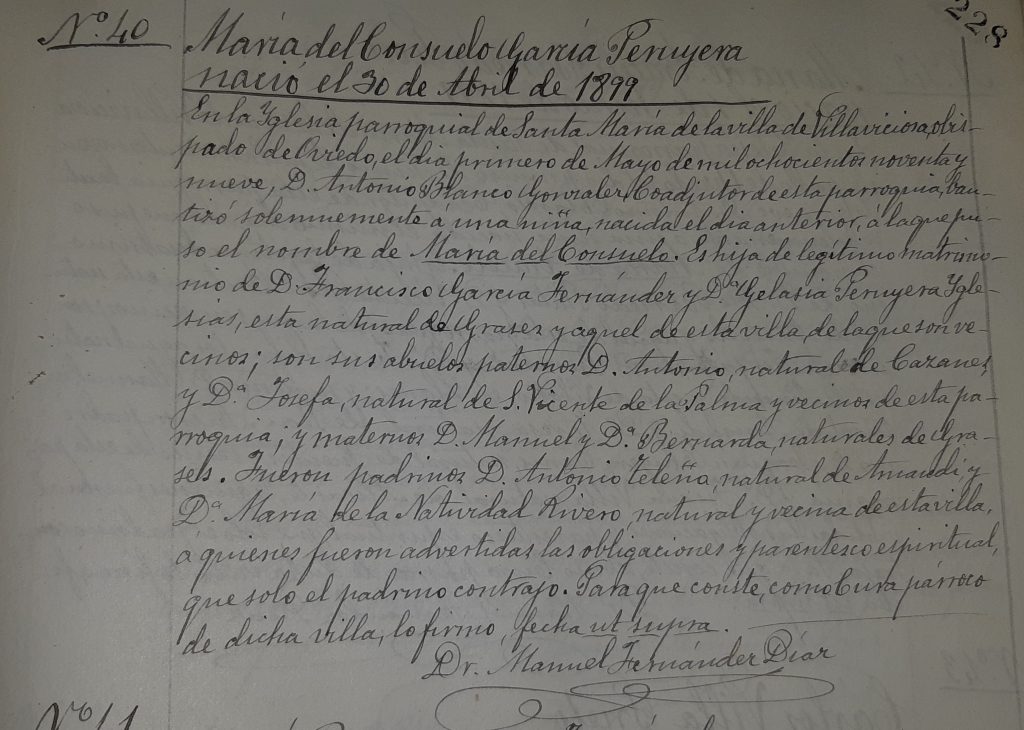 228
Nº. 40
María del Consuelo García Peruyera
nació el 30 de Abril de 1899
En la Yglesia parroquial de Santa María de la villa de Villaviciosa, obis-
pado de Oviedo, el dia primero de Mayo de mil ochocientos noventa y
nueve, D. Antonio Blanco Gonzalez, Coadjutor de esta parroquia, bau-
tizó solemnemente a una niña, nacida el dia anterior, á la que pu-
so el nombre de María del Consuelo. Es hija de legítimo matrimo-
nio de D. Francisco García Fernández y D.ª Gelasia Peruyera Ygle-
sias, esta natural de Grases y aquel de esta villa, de la que son ve-
cinos; son sus abuelos paternos D. Antonio, natural de Cazanes,
y D.ª Josefa, natural de S. Vicente de la Palma y vecinos de esta pa-
rroquia; y maternos D. Manuel y D.ª Bernarda, naturales de Gra-
ses. Fueron padrinos D. Antonio Teleña, natural de Amandi, y
D.ª María de la Natividad Rivero, natural y vecina de esta villa,
á quienes fueron advertidas las obligaciones y parentesco espiritual,
que solo el padrino contrajo. Para que conste, como Cura párroco
de dicha villa, lo firmo, fecha ut supra.
Dr. Manuel Fernández Díaz
Nº 41